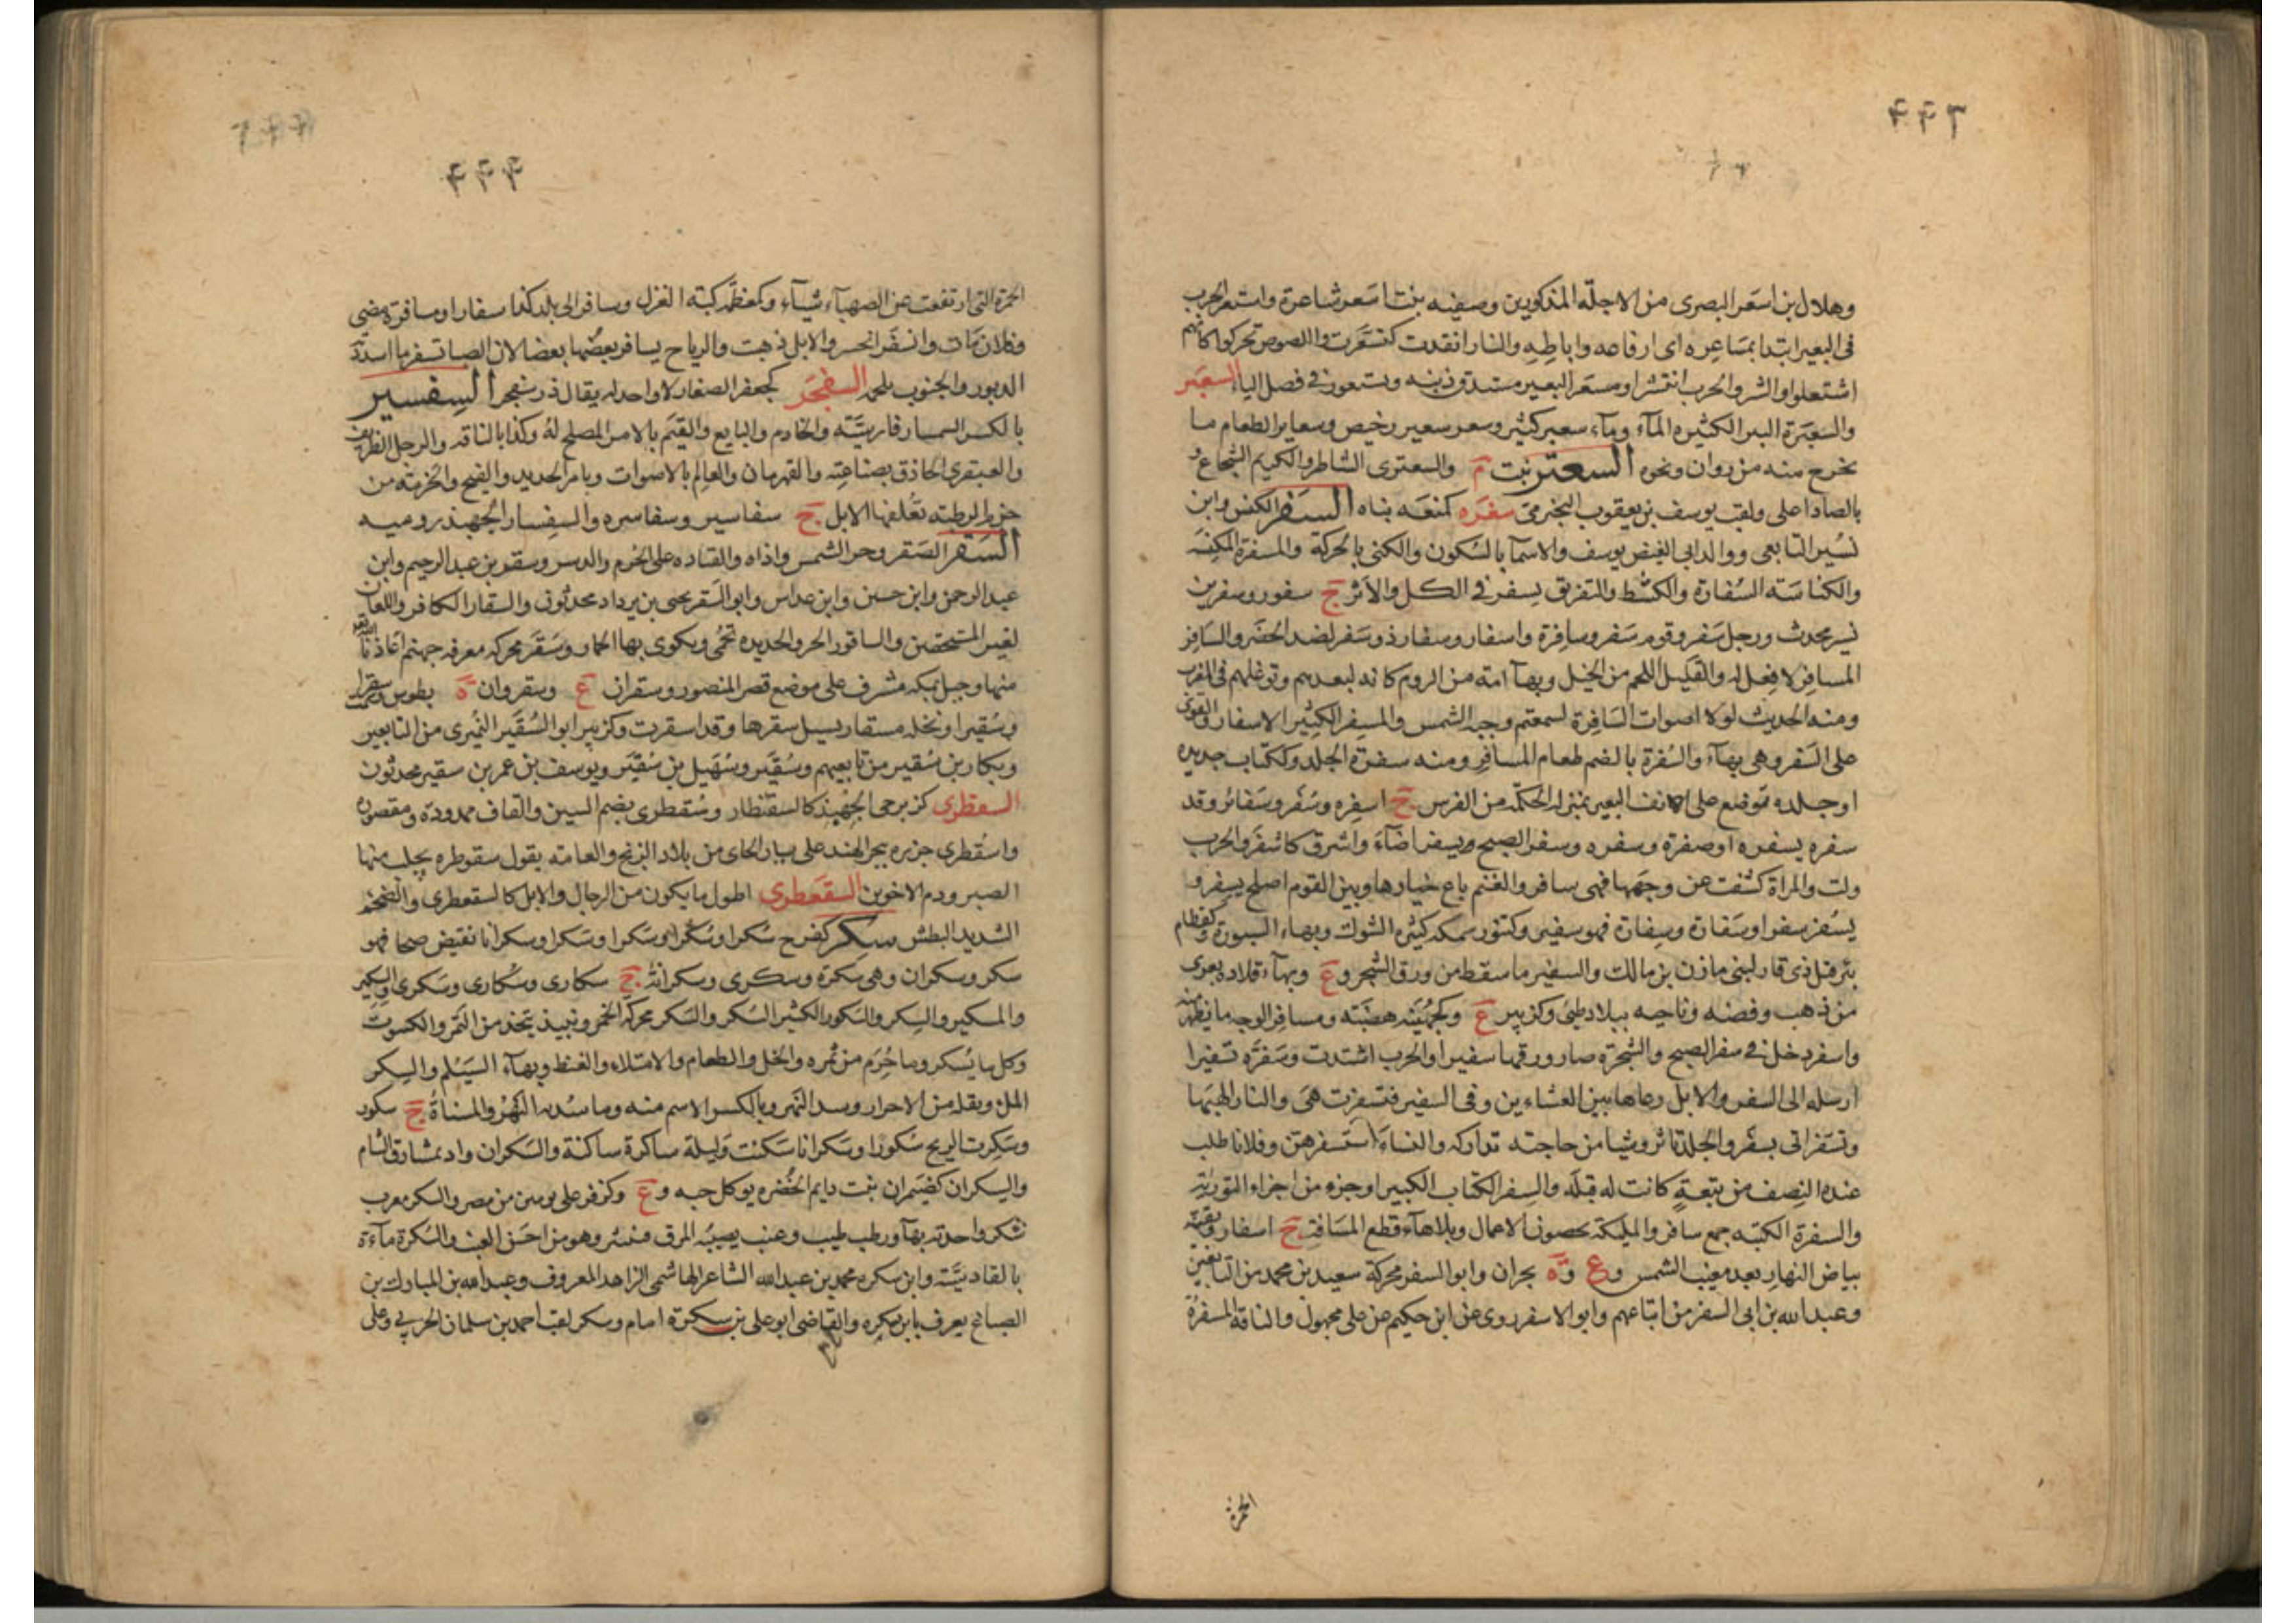 ٢٢٦
وهلال بن اسعر البصرى من الاجلّه المذكورين وصفيه بنت اسعر شاعرة واستعر الجرب
فى البعير ابتدا بمساعره اى ارفاغه واباطه والنار اتقدت كتسعّرت واللصوص تحركوا كانهم
اشتعلوا والشر والحرب انتشرا ومسعر البعير مستدق ذنبه ويستعور فى فصل الياء السعبر
والسعبرة البير الكثيره المآء وماء سعبر كثير وسعر سعبر رخيص وسعابر الطعام ما
يخرج منه من زوان ونحوه السعتر نبت م والسعترى الشاطر والكريم الشجاع و
بالصاد اعلى ولقب يوسف بن يعقوب النجيرمى سغره كمنعه نفاه السفر الكنس وابن
نسير التابعى ووالد ابى الفيض يوسف والاسمآ بالسكون والكنى بالحركة والمسفرة المكنسة
والكناسه السفارة والكشط والتفريق يسفر فى الكل والاثر ج سفور وسفر بن
نسير محدث ورجل سفر وقوم سفر وسافرة واسفار وسفار ذو سفر لضد الحضر والسافر
المسافر لا فعل له والقليل اللحم من الخيل وبهآ امة من الروم كانه لبعدهم وتوغلهم فى المغرب
ومنه الحديث لولا اصوات السافرة لسمعتم وجبة الشمس والمسفر الكثير الاسفار والقوى
على السفر وهى بهآء والسفرة بالضم طعام المسافر ومنه سفرة الجلد وككتاب حديده
او جلده توضع على انف البعير بمنزله الحكمة من الفرس ج اسفره وسفر وسفائر وقد
سفره يسفره واسفره وسفره وسفر الصبح يسفر اضآء واشرق كاسفر والحرب
ولت والمراة كشفت عن وجهها فهى سافر والغنم باع خيارها وبين القوم اصلح يسفر و
يسفر سفرا وسفارة وسفارة فهو سفير وكتنور سمكه كثيره الشوك وبهاء السبورة وكقطام
بئر قبل ذى قار لبنى مازن بن مالك والسفير ما سقط من ورق الشجر وع وبهآء قلاده بعرى
من ذهب وفضه وناحيه ببلاد طيئ وكزبير ع وكجهينه هضبة ومسافر الوجه ما يظهر منه
واسفر دخل فى سفر الصبح والشجرة صار ورقها سفيرا والحرب اشتدت وسفره تسفيرا
ارسله الى السفر والابل رعاها بين العشاءين وفى السفير فتسفرت هى والنار الهبها
وتسفر اتى بسفر والجلد تاثر وشيا من حاجته تداركه والنساء استسفرهن وفلانا طلب
عنده النصف من تبعة كانت له قبله والسفر الكتاب الكبير او جزء من اجزاء التورية
والسفرة الكتبه جمع سافر والمليكة يحصون الاعمال وبلا هآء قطع المسافة ج اسفار وبقية
بياض النهار بعد مغيب الشمس وع وة بحران وابو السفر محركة سعيد بن محمد من التابعين
وعبدالله بن ابى السفر من اتباعهم وابو الاسفر روى عن ابن حكيم عن على مجهول والناقة المسفرة
الحمرة
٢٢٢
الحمرة التى ارتفعت عن الصهبآء شيآء وكمعظم كبة الغزل وسافر الى بلد كذا سفارا ومسافرة مضى
وفلان مات وانسفر انحسر والابل ذهبت والرياح يسافر بعضها بعضا لان الصبا تسفر ما اسدته
الدبور والجنوب تلحمه السفجر كجعفر الصغار لا واحد له يقال ذر سفجر السفسير
بالكسر السمسار فارسية والخادم والتابع والقيم بالامر المصلح له وكذا بالناقه والرجل الظريف
والعبقرى الحاذق بصناعته والقهرمان والعالم بالاصوات وبامر الحديد والفيج والحزمة من
حزم الرطبه تعلفها الابل ج سفاسير وسفاسره والسفسار الجهبذ روميه
السقر الصقر وحر الشمس واذاه والقياده على الحرم والدبس وسقر بن عبد الرحيم وابن
عبد الرحمن وابن حسين وابن عداس وابو السقر يحيى بن يزداد محدثون والسقار الكافر واللعان
لغير المستحقين والساقور الحر والحديده تحمى ويكوى بها الحمار وسقر محركه معرفه جهنم اعاذنا الله
منها وجبل بمكه مشرف على موضع قصر المنصور وسقران ع وسقروان ة بطوس
وسقيرا ونخله مسقار يسيل سقرها وقد اسقرت وكزبير ابو السقير النميرى من التابعين
وبكار بن سقير من تابعيهم وسقير وسهيل بن سقير ويوسف بن عمر بن سقير محدثون
السقطرى كزبرجى الجهبذ كالسقنطار وسقطرى بضم السين والقاف ممدودة ومقصوره
واسقطرى جزيره ببحر الهند على يسار الجاى من بلاد الزنج والعامه يقول سقوطره يجلب منها
الصبر ودم الاخوين السقعطرى اطول ما يكون من الرجال والابل كالسقعطرى والضخم
الشديد البطش سكر كفرح سكرا وسكرا وسكرا وسكرا وسكرانا نقيض صحا فهو
سكر وسكران وهى سكرة وسكرى وسكرانة ج سكارى وسكارى وسكرى والسكير
والمسكير والسكر والسكور الكثير السكر والسكر محركة الخمر ونبيذ يتخذ من التمر والكشوث
وكل ما يسكر وما حرم من ثمره والخل والطعام والامتلاء والغيظ وبهآء الشيلم والسكر
الملئ وبقلة من الاحرار وسد النهر وبالكسر الاسم منه وما سد به النهر والمسناة ج سكور
وسكرت الريح سكورا وسكرانا سكنت وليلة ساكرة ساكنة والسكران واد بمشارق الشام
والسيكران كضيمران نبت دايم الخضره يوكل حبه وع وكزفر على يومين من مصر والسكر معرب
شكر واحدته بهآ ورطب طيب وعنب يصيبه المرق فينتثر وهو من احسن العنب والسكرة ماءة
بالقادسية وابن سكره محمد بن عبدالله الشاعر الهاشمى الزاهد المعروف وعبدالله بن المبارك بن
الصباغ يعرف بابن سكره والقاضى ابو على بن سكرة امام وسكر لقب احمد بن سلمان الحربى وعلى